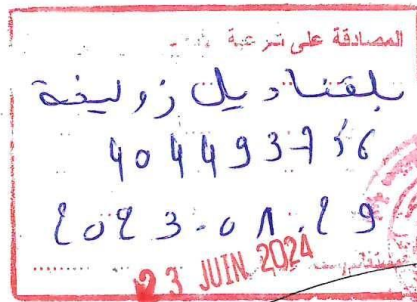 المصادقة على شرعية
بلقناديل زوليخة
404493756
2023.08.29
23 JUIN 2024